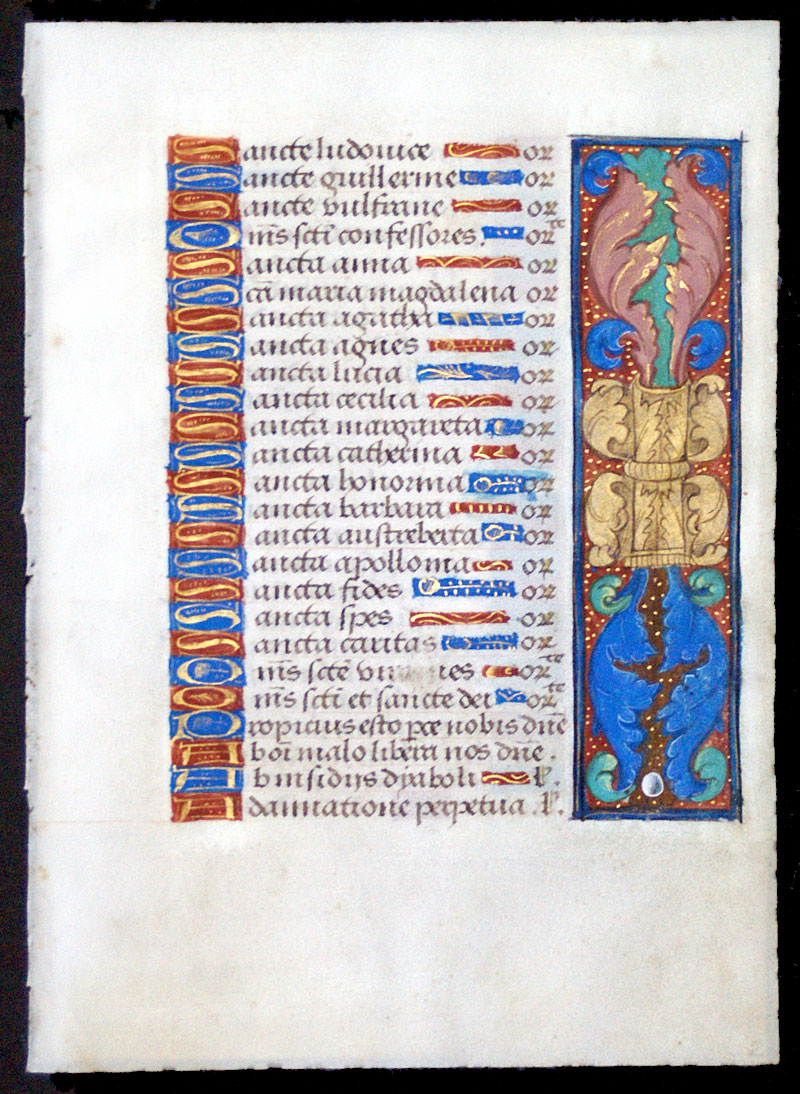 Sancte ludovice or
Sancte guillerme or
Sancte vulfrane or
Oms scti confessores. orte
Sancta anna or
Scā maria magdalena or
Sancta agatha or
Sancta agnes or
Sancta lucia or
Sancta cecilia or
Sancta margareta or
Sancta catherina or
Sancta honorina or
Sancta barbara or
Sancta austreberta or
Sancta apollonia or
Sancta fides or
Sancta spes or
Sancta caritas or
Oms scte orte
Oms scti et sancte dei orte
Propicius esto pce nobis dñe
A boī malo libera nos dñe.
Ab insidijs dyaboli l.
A damnatione perpetua. l.